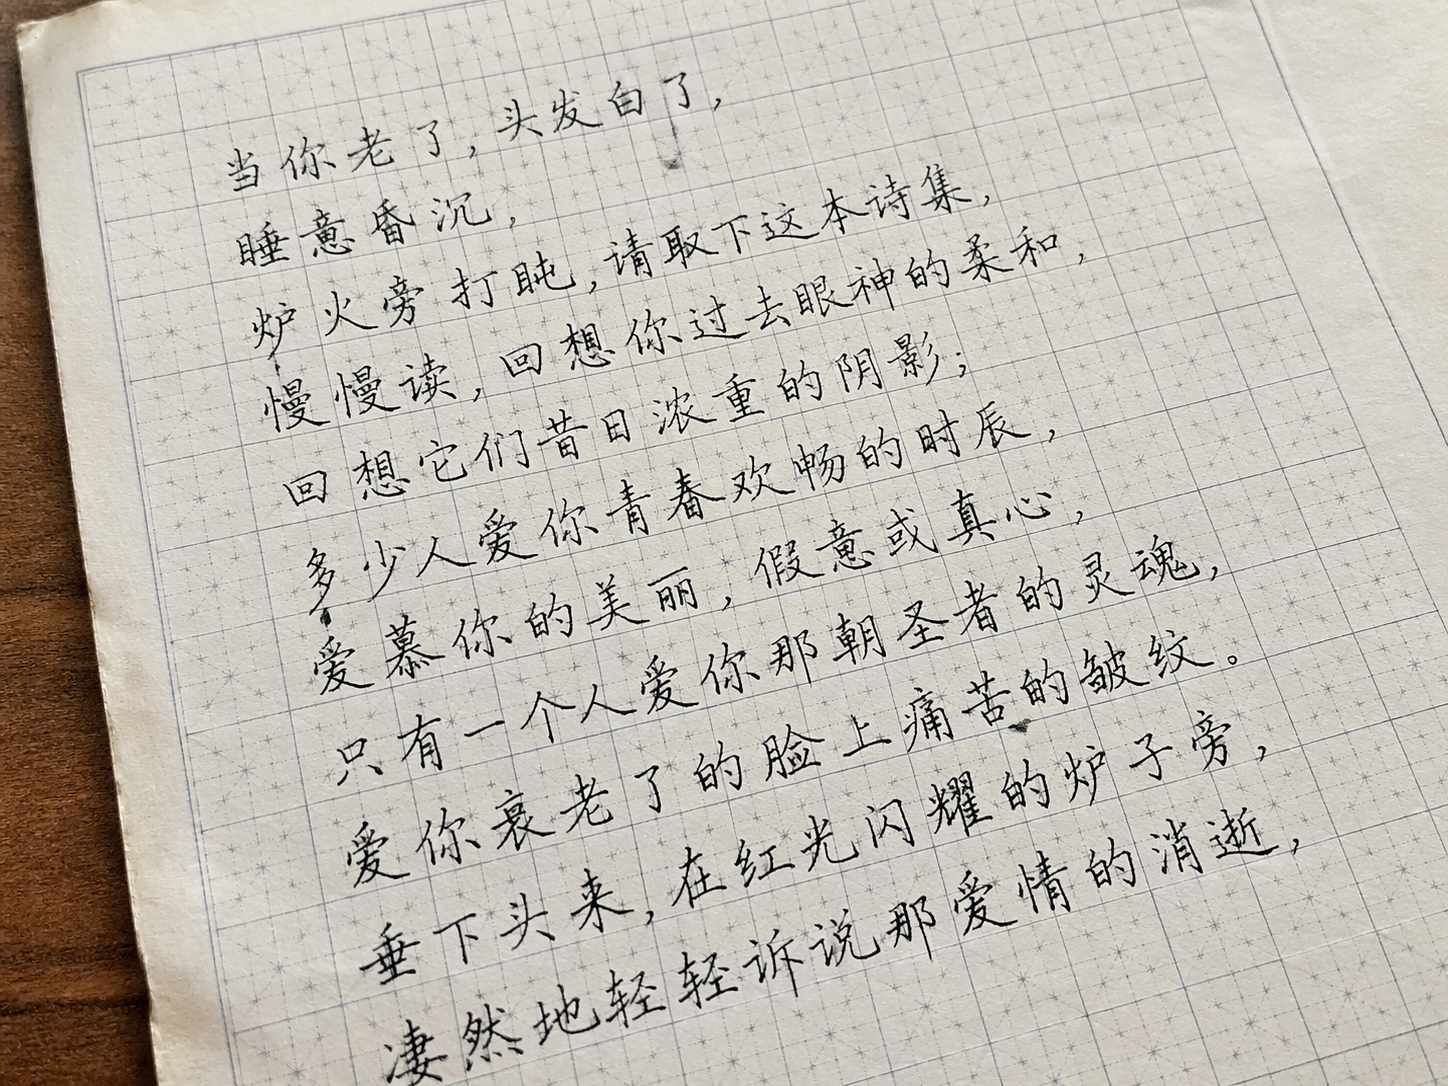 当你老了,头发白了,
睡意昏沉,
炉火旁打盹,请取下这本诗集,
慢慢读,回想你过去眼神的柔和,
回想它们昔日浓重的阴影;
多少人爱你青春欢畅的时辰,
爱慕你的美丽,假意或真心,
只有一个人爱你那朝圣者的灵魂,
爱你衰老了的脸上痛苦的皱纹。
垂下头来,在红光闪耀的炉子旁,
凄然地轻轻诉说那爱情的消逝,